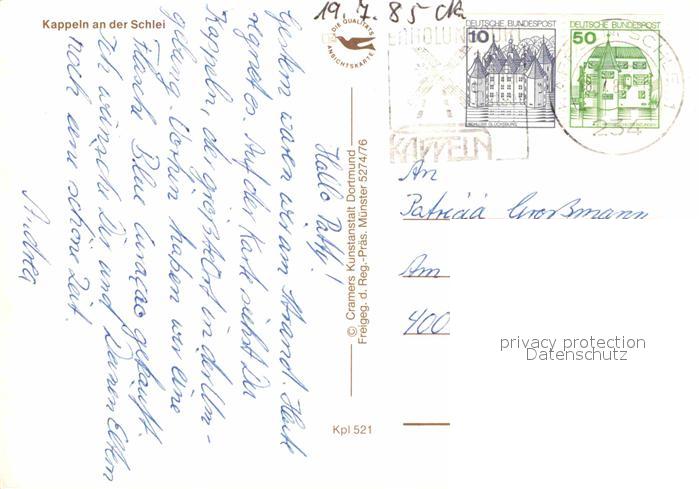 Kappeln an der Schlei
19.7.85 CK
DIE QUALITÄTS
ANSICHTSKARTE
DEUTSCHE BUNDESPOST
10
SCHLOSS GLÜCKSBURG
DEUTSCHE BUNDESPOST
50
ERHOLUNGSORT
KAPPELN
234
Hallo Patty!
Gestern waren wir am Strand. Heute
regnet es. Auf der Karte siehst Du
Kappeln, der größte Ort in der Um-
gebung. Dorthin haben wir eine
Flasche Blue Curaçao gekauft.
Ich wünsche Dir und Deinen Eltern
noch eine schöne Zeit.
Andrea
© Cramers Kunstanstalt Dortmund
Freigeg. d. Reg.-Präs. Münster 5274/76
Kpl 521
An
Patricia Großmann
Am
400
privacy protection
Datenschutz